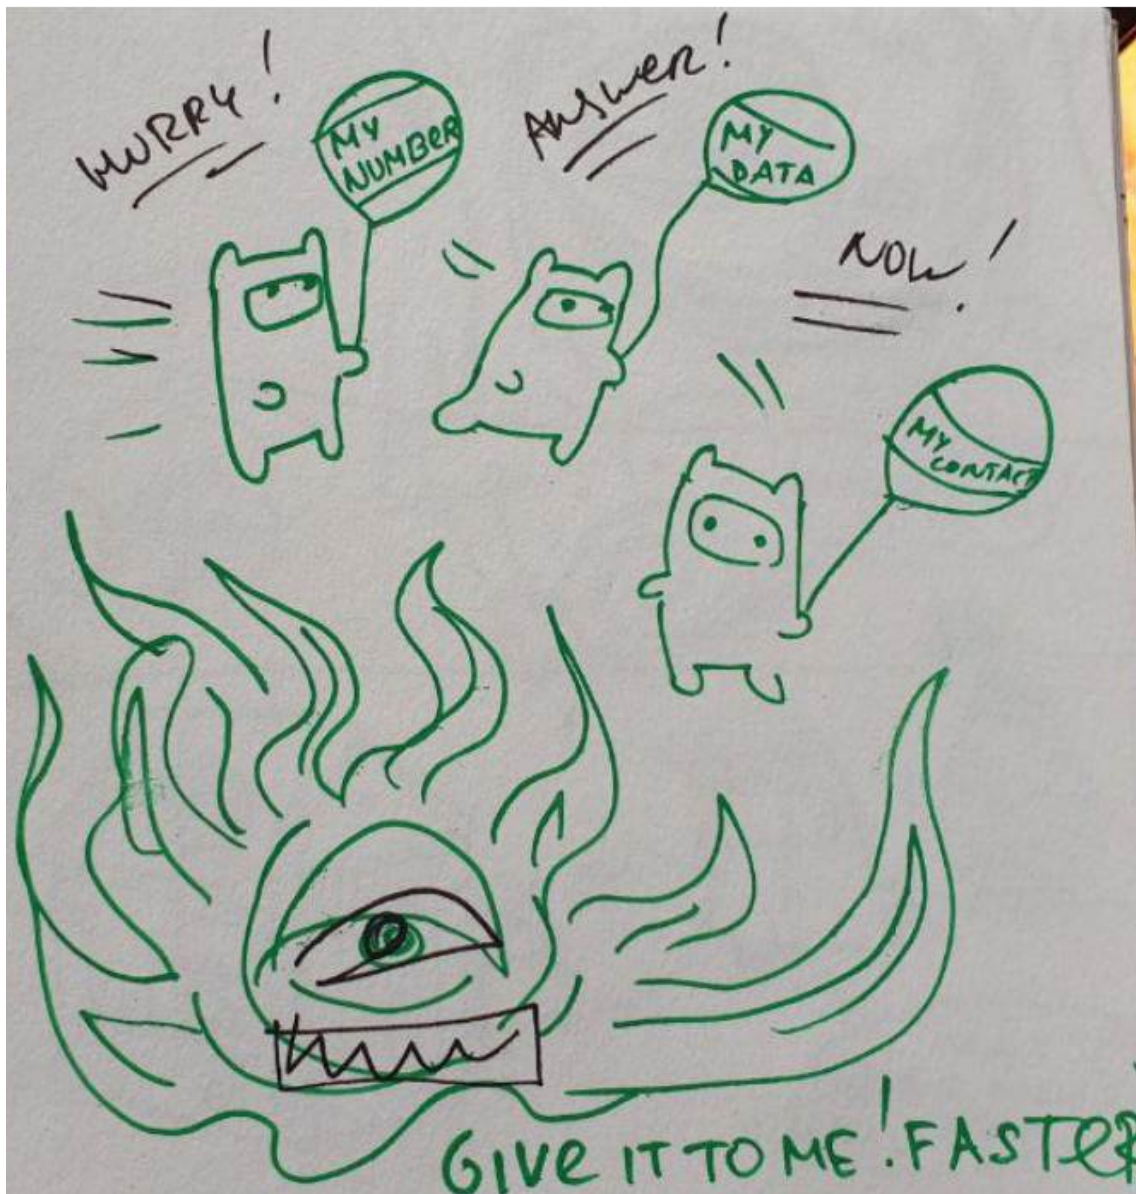 HURRY!
ANSWER!
MY
NUMBER
MY
DATA
NOW!
MY
CONTACT
GIVE IT TO ME! FASTER